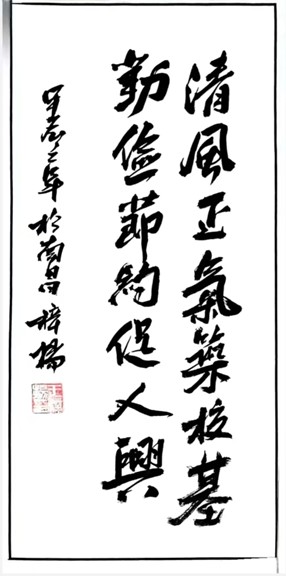 清風正氣築校基
勤儉節約促人興
年於南昌